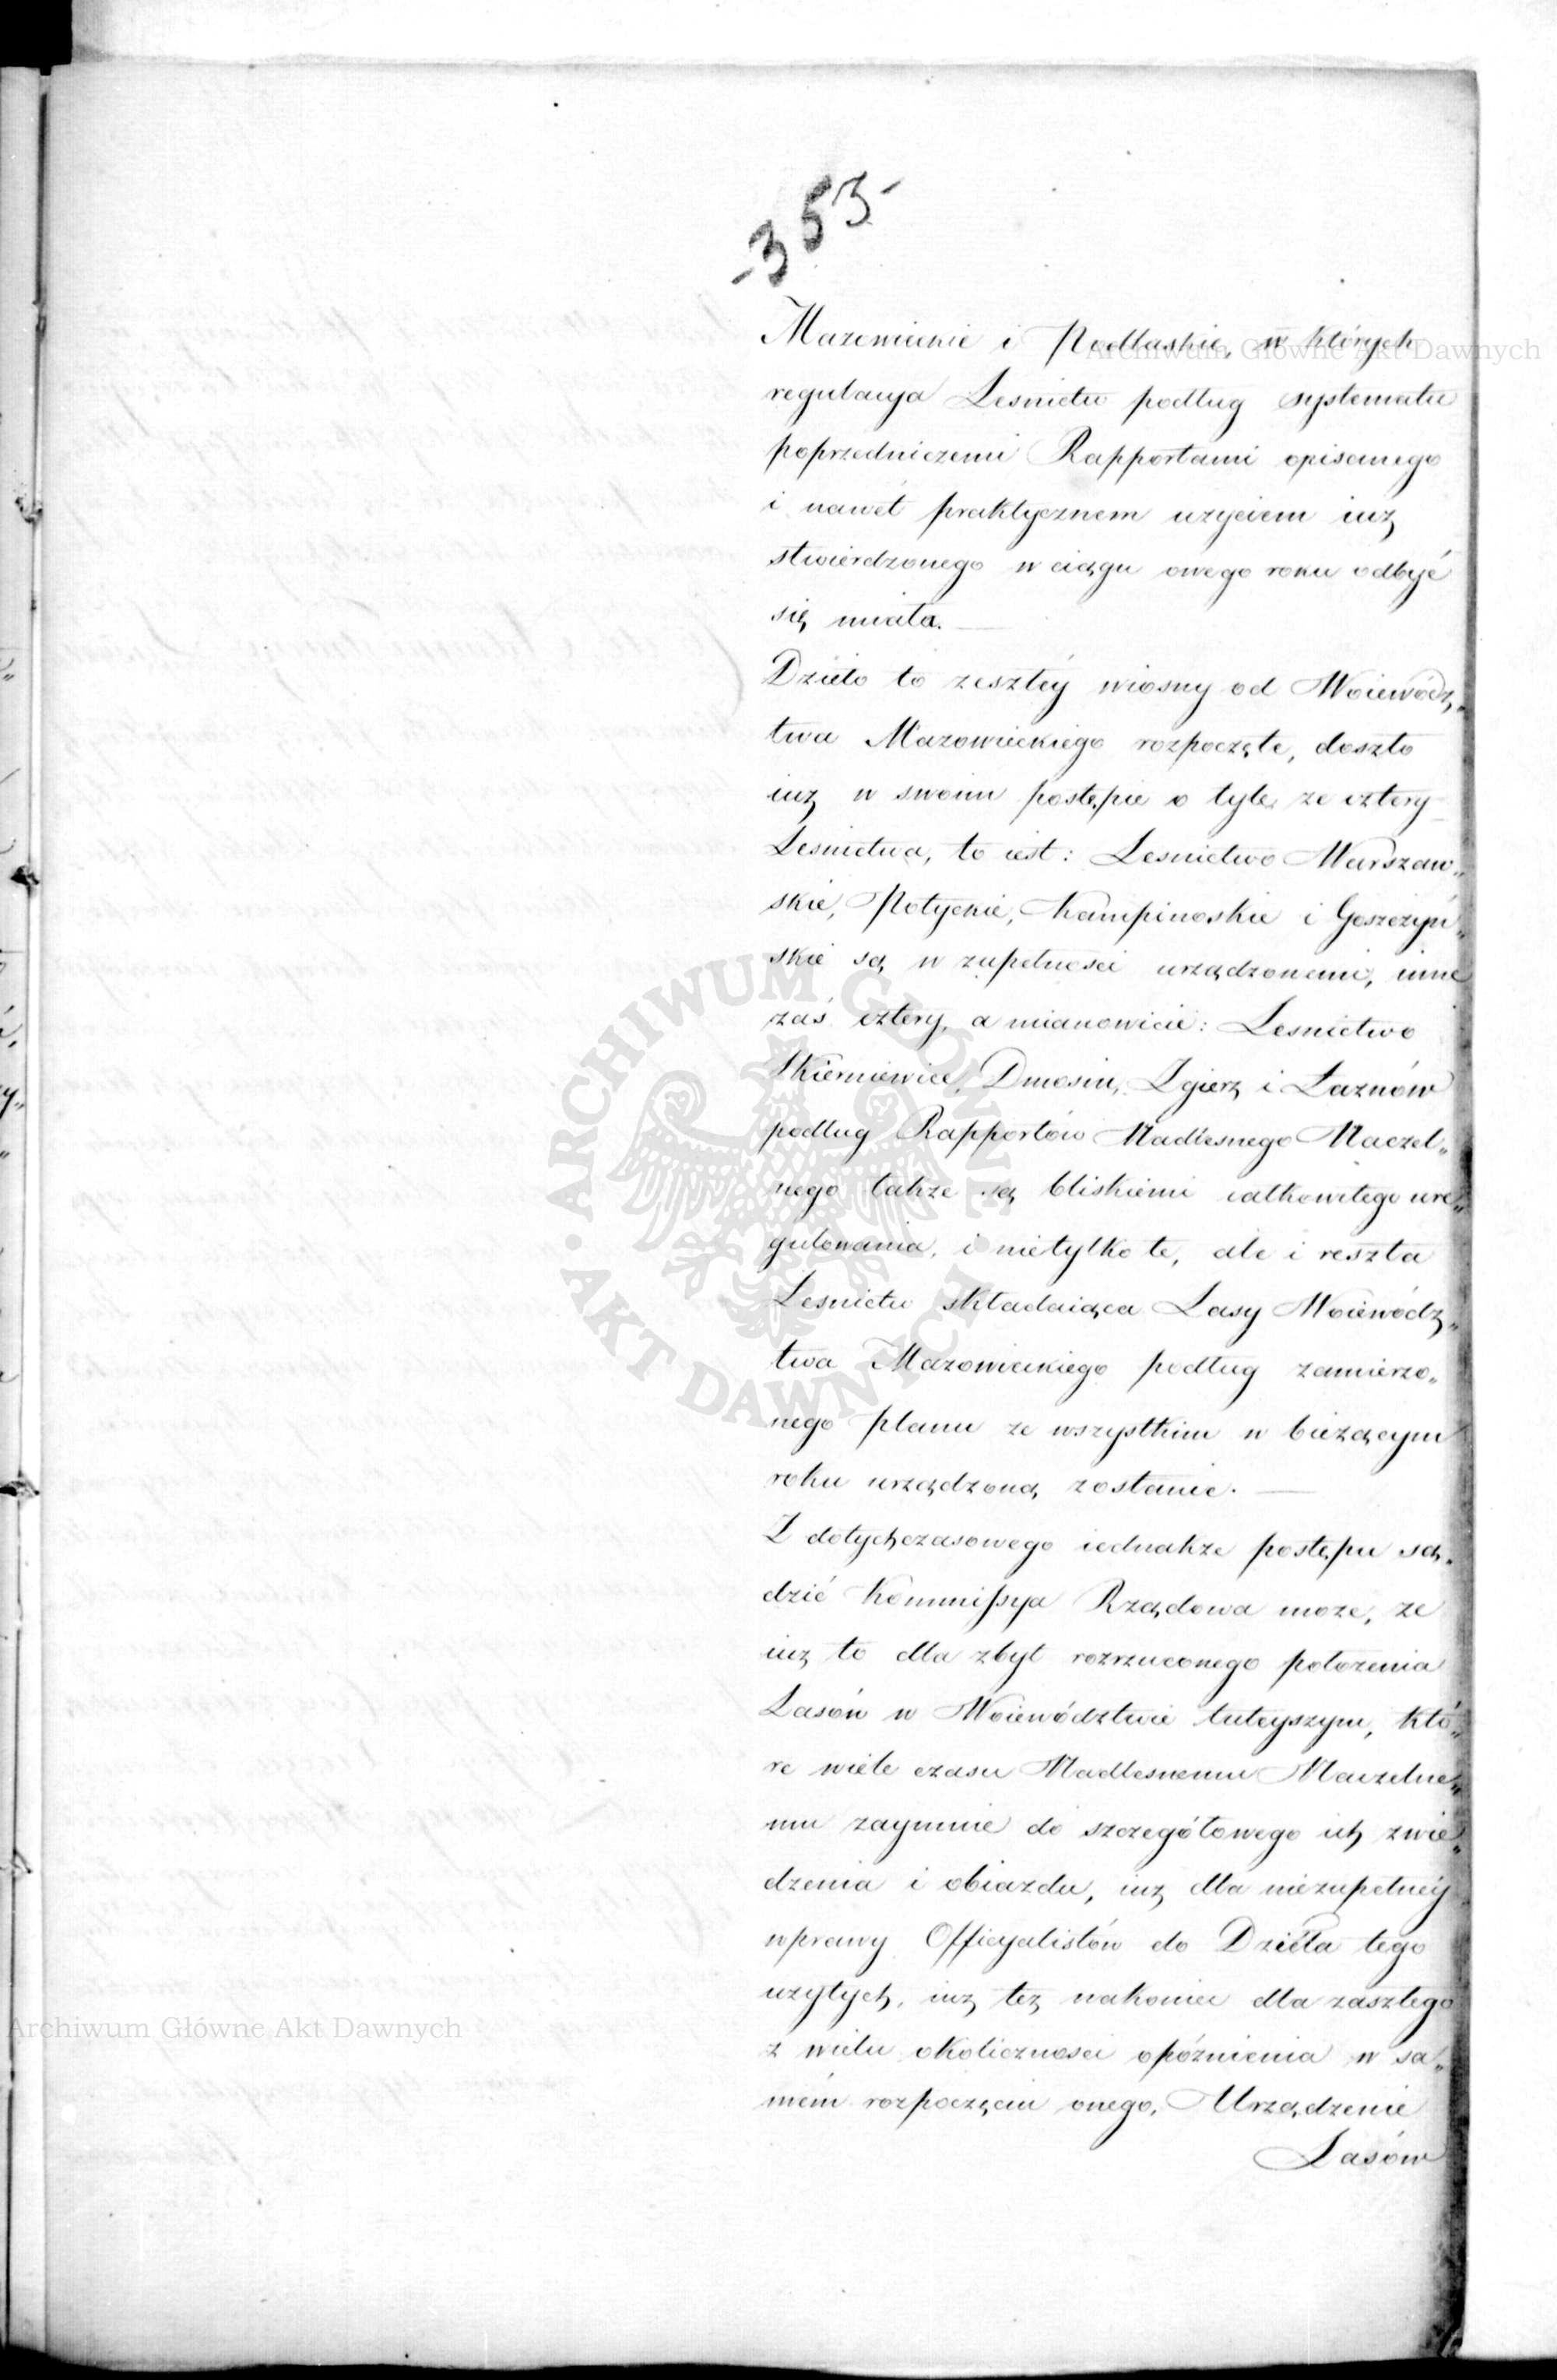 -353-
Mazowieckie i Podlaskie, w których
regulacya Lesnictw podług systematu
poprzedniczemi Rapportami opisanego
i nawet praktycznem użyciem iuż
stwierdzonego w ciągu owego roku odbyć
się miała. —
Dzieło to zeszłéy wiosny od Woiewódz„
twa Mazowieckiego rozpoczęte, doszło
iuż w swoim postępie o tyle, że cztery
Lesnictwa, to iest: Lesnictwo Warszaw„
skie, Potyckie, Kampinoskie i Goszczyń„
skie są w zupełnosci urządzonemi, inne
zaś cztery, a mianowicie: Lesnictwo
Skierniewice, Dmosin, Zgierz i Łaznów
podług Rapportów Nadlesnego Naczel„
nego także są bliskiemi całkowitego ure„
gulowania, i nietylko te, ale i reszta
Lesnictw składaiąca Lasy Woiewódz„
twa Mazowieckiego podług zamierzo„
nego planu ze wszystkim w bieżącym
roku urządzoną zostanie. —
Z dotychczasowego iednakże postępu są„
dzić Kommissya Rządowa może, że
iuż to dla zbyt rozrzuconego położenia
Lasów w Woiewództwie tuteyszym, któ„
re wiele czasu Nadlesnemu Naczelne„
mu zaymuie do szczegółowego ich zwie„
dzenia i obiazdu, iuż dla niezupełnéy
wprawy Officyalistów do Dzieła tego
użytych, iuż też nakoniec dla zaszłego
z wielu okolicznosci opóźnienia w sa„
mém rozpoczęciu onego, Urządzenie
Lasów
Archiwum Główne Akt Dawnych
ARCHIWUM GŁÓWNE · AKT DAWNYCH ·
Archiwum Główne Akt Dawnych